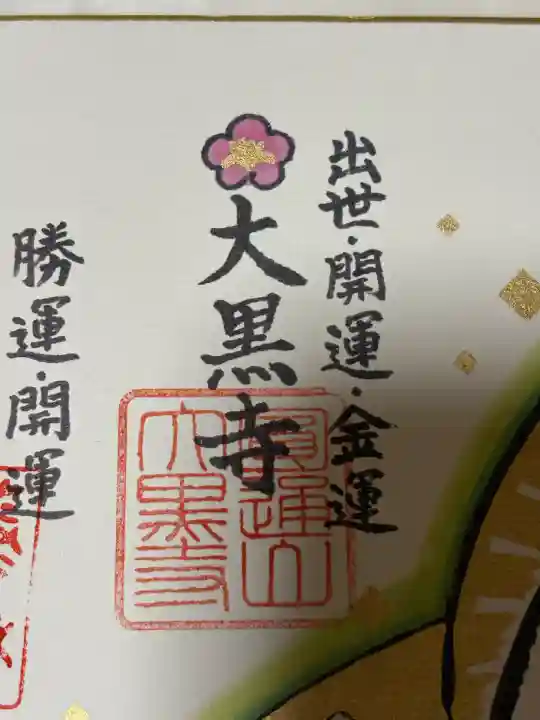 出世・開運・金運
大黒寺
圓通山
大黒寺
勝運・開運